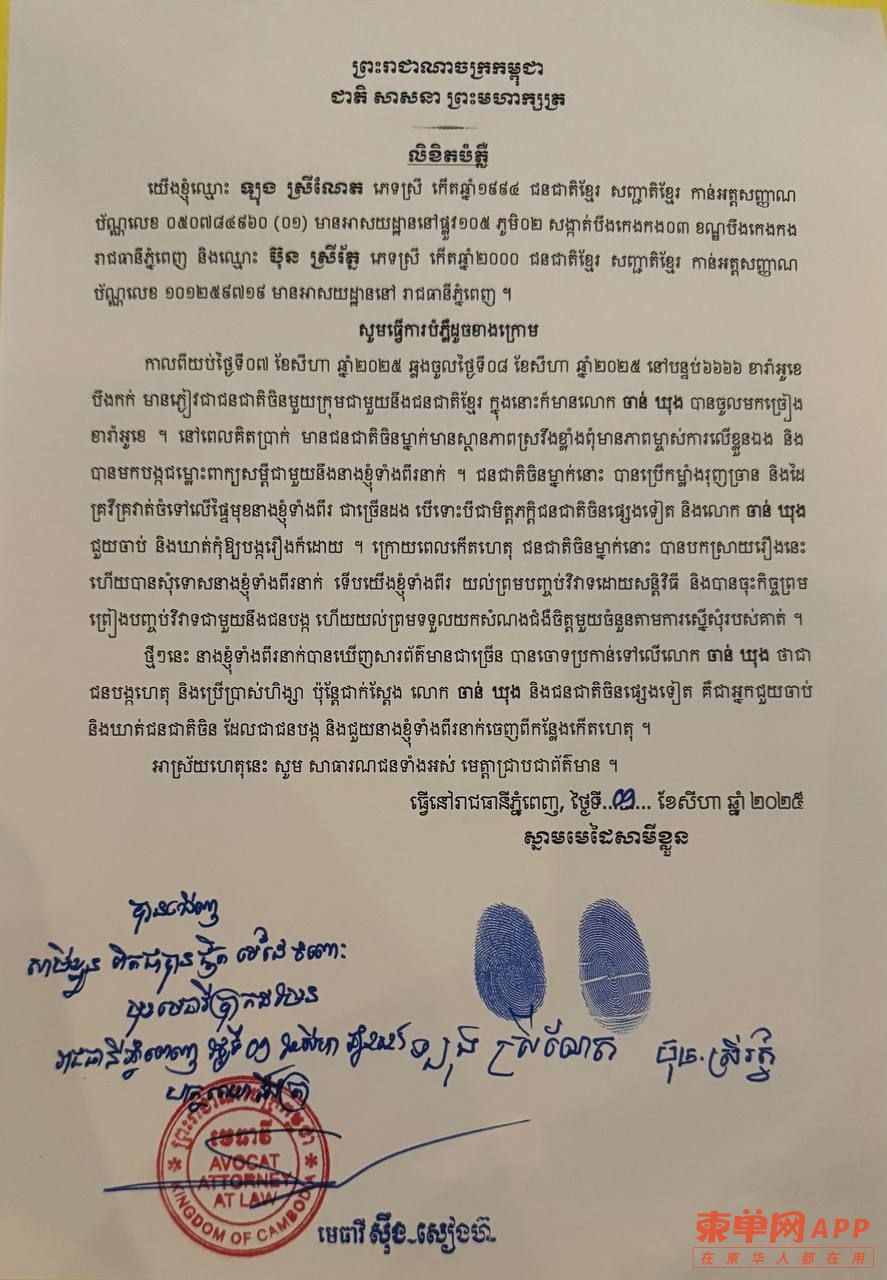 ព្រះរាជាណាចក្រកម្ពុជា
ជាតិ សាសនា ព្រះមហាក្សត្រ
លិខិតបំភ្លឺ
យើងខ្ញុំឈ្មោះ ឡុង ស្រីណែត ភេទស្រី កើតឆ្នាំ១៩៩៤ ជនជាតិខ្មែរ សញ្ជាតិខ្មែរ កាន់អត្តសញ្ញាណ
ប័ណ្ណលេខ ០៥០៧៨៤៩៦០ (០១) មានអាសយដ្ឋាននៅផ្លូវ១០៥ ភូមិ០២ សង្កាត់បឹងកេងកង០៣ ខណ្ឌបឹងកេងកង
រាជធានីភ្នំពេញ និងឈ្មោះ ប៊ុន ស្រីរ័ត្ន ភេទស្រី កើតឆ្នាំ២០០០ ជនជាតិខ្មែរ សញ្ជាតិខ្មែរ កាន់អត្តសញ្ញាណ
ប័ណ្ណលេខ ១០១២៥៩៧១៩ មានអាសយដ្ឋាននៅ រាជធានីភ្នំពេញ ។
សូមធ្វើការបំភ្លឺដូចខាងក្រោម
កាលពីយប់ថ្ងៃទី០៧ ខែសីហា ឆ្នាំ២០២៥ ឆ្លងចូលថ្ងៃទី០៨ ខែសីហា ឆ្នាំ២០២៥ នៅបន្ទប់៦៦៦៦ ខារ៉ាអូខេ
បឹងកក់ មានភ្ញៀវជាជនជាតិចិនមួយក្រុមជាមួយនឹងជនជាតិខ្មែរ ក្នុងនោះក៏មានលោក ចាន់ ឃុង បានចូលមកច្រៀង
ខារ៉ាអូខេ ។ នៅពេលគិតប្រាក់ មានជនជាតិចិនម្នាក់មានស្ថានភាពស្រវឹងខ្លាំងពុំមានភាពម្ចាស់ការលើខ្លួនឯង និង
បានមកបង្កជម្លោះពាក្យសម្តីជាមួយនឹងនាងខ្ញុំទាំងពីរនាក់ ។ ជនជាតិចិនម្នាក់នោះ បានប្រើកម្លាំងរុញច្រាន និងដៃ
គ្រវីគ្រវាត់ចំទៅលើផ្ទៃមុខនាងខ្ញុំទាំងពីរ ជាច្រើនដង បើទោះបីជាមិត្តភក្តិជនជាតិចិនផ្សេងទៀត និងលោក ចាន់ ឃុង
ជួយចាប់ និងឃាត់កុំឱ្យបង្ករឿងក៏ដោយ ។ ក្រោយពេលកើតហេតុ ជនជាតិចិនម្នាក់នោះ បានបកស្រាយរឿងនេះ
ហើយបានសុំទោសនាងខ្ញុំទាំងពីរនាក់ ទើបយើងខ្ញុំទាំងពីរ យល់ព្រមបញ្ចប់វិវាទដោយសន្តិវិធី និងបានចុះកិច្ចព្រម
ព្រៀងបញ្ចប់វិវាទជាមួយនឹងជនបង្ក ហើយយល់ព្រមទទួលយកសំណងជំងឺចិត្តមួយចំនួនតាមការស្នើសុំរបស់គាត់ ។
ថ្មីៗនេះ នាងខ្ញុំទាំងពីរនាក់បានឃើញសារព័ត៌មានជាច្រើន បានចោទប្រកាន់ទៅលើលោក ចាន់ ឃុង ថាជា
ជនបង្កហេតុ និងប្រើប្រាស់ហិង្សា ប៉ុន្តែជាក់ស្តែង លោក ចាន់ ឃុង និងជនជាតិចិនផ្សេងទៀត គឺជាអ្នកជួយចាប់
និងឃាត់ជនជាតិចិន ដែលជាជនបង្ក និងជួយនាងខ្ញុំទាំងពីរនាក់ចេញពីកន្លែងកើតហេតុ ។
អាស្រ័យហេតុនេះ សូម សាធារណជនទាំងអស់ មេត្តាជ្រាបជាព័ត៌មាន ។
ធ្វើនៅរាជធានីភ្នំពេញ, ថ្ងៃទី..០៩... ខែសីហា ឆ្នាំ ២០២៥
ស្នាមមេដៃសាមីខ្លួន
បានឃើញ
សាមីខ្លួន ពិតជាបានផ្តិត មេដៃ ចំពោះ
រាជធានីភ្នំពេញ ថ្ងៃទី ០៩ ខែសីហា
ឡុង ស្រីណែត ប៊ុន.ស្រីរ័ត្ន
ព្រះរាជាណាចក្រកម្ពុជា
មេធាវី
AVOCAT
ATTORNEY
AT LAW
KINGDOM OF CAMBODIA
មេធាវី ស៊ឹង សៀងហ៊
柬单网APP
在柬华人都在用